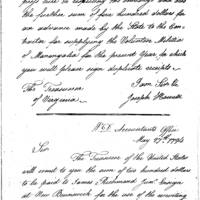 the further sum of five hundred dollars for
an advance made by the State to the Con-
tractor for supplying the Volunteer Militia
of Monongalia for the present Year, for which
you will please sign duplicate receipts
I am Sir &c
The Treasurer
Joseph Howell
of Virginia
Accountants Office
May 17th 1794
Sir
The Treasurer of the United States
will remit to you the sum of two hundred dollars
to be paid to James Richmond
at New Brunswick for the use of the recruiting